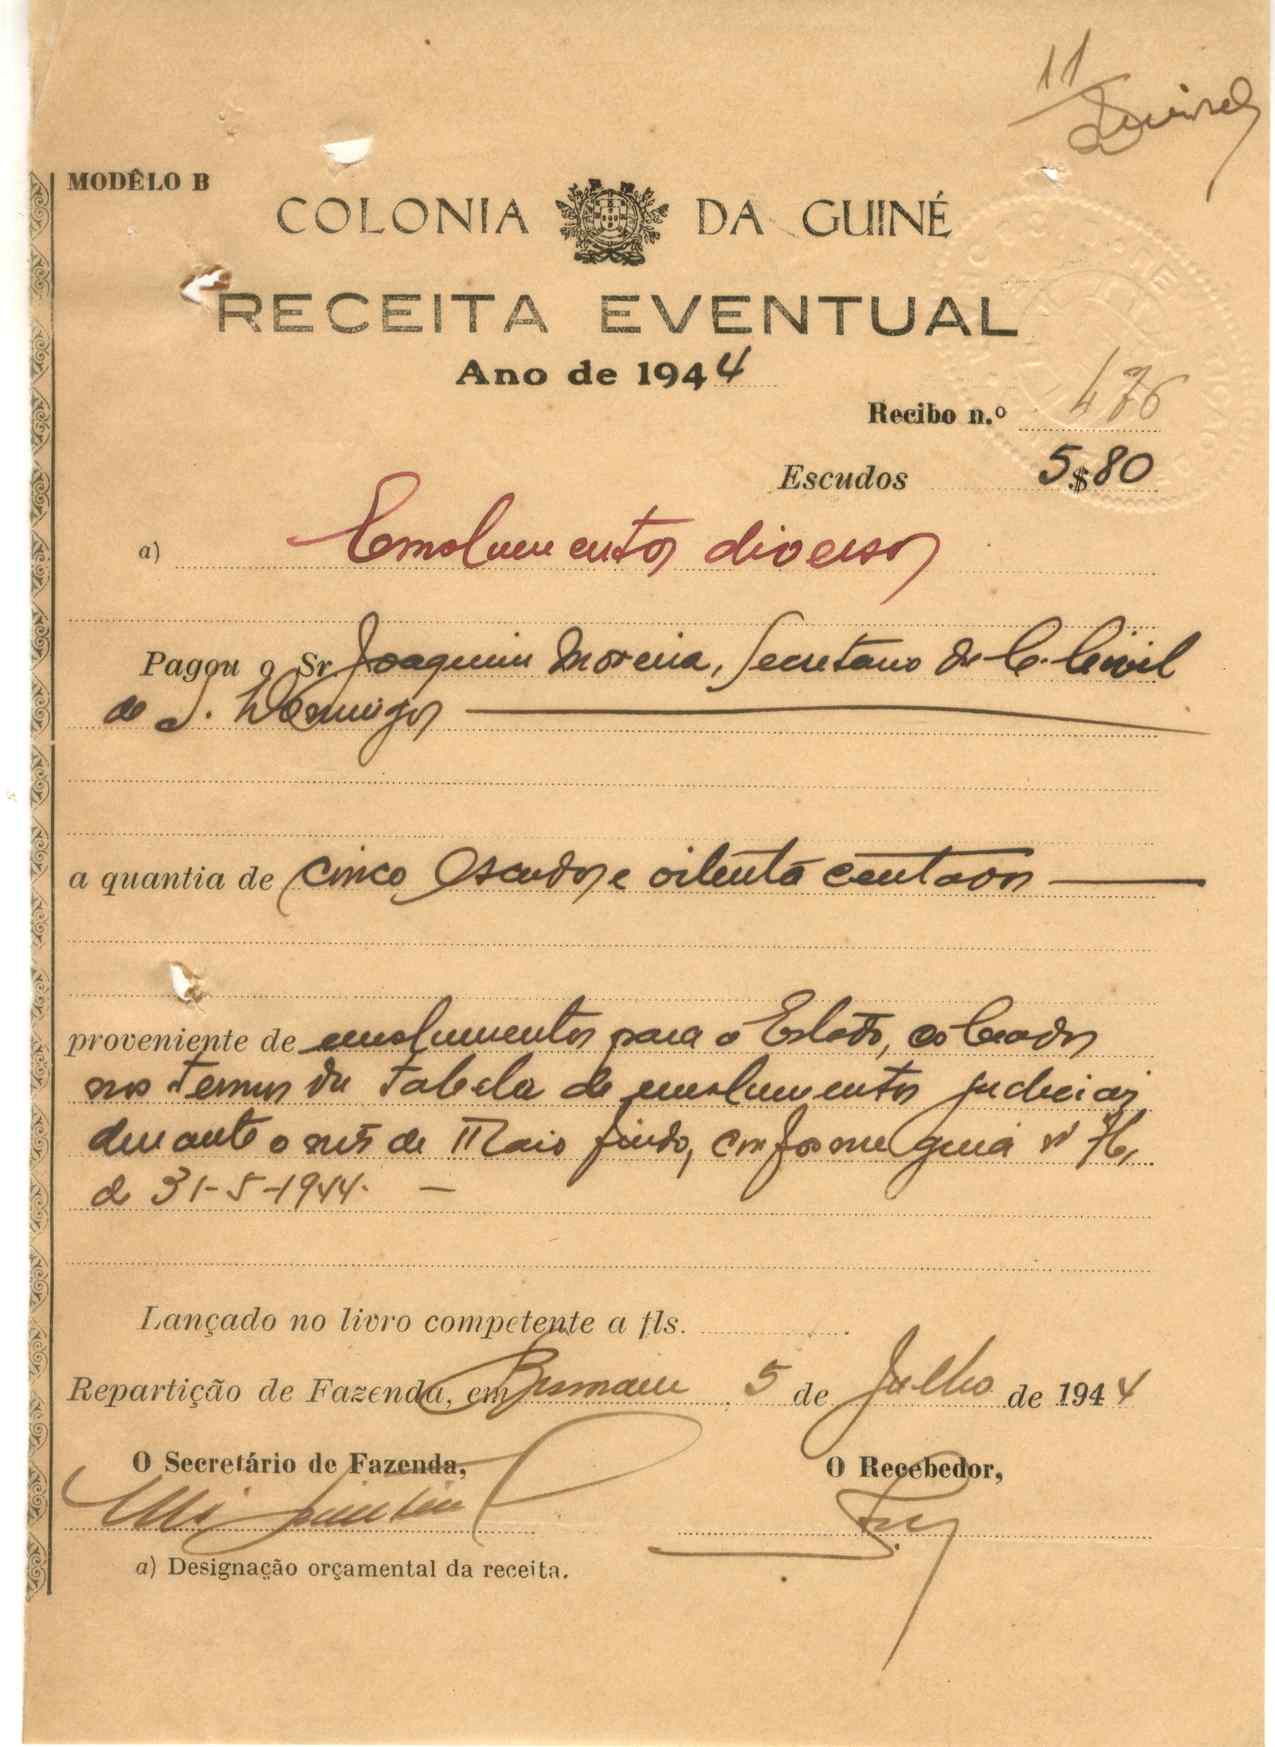 11
MODÊLO B
COLONIA DA GUINÉ
RECEITA EVENTUAL
Ano de 1944
Recibo n.º 476
Escudos 5$80
a) Emolumentos diversos
Pagou o Sr Joaquim Moreira, Secretario da C. Civil
de S. Domingos
a quantia de cinco escudos e oitenta centavos
proveniente de emolumentos para o Estado, cobrados
nos termos da tabela de emolumentos judiciais
durante o mês de Maio findo, conforme guia nº 76,
de 31-5-1944. —
Lançado no livro competente a fls.
Repartição de Fazenda, em 5 de Julho de 1944
O Secretário de Fazenda,
O Recebedor,
a) Designação orçamental da receita.